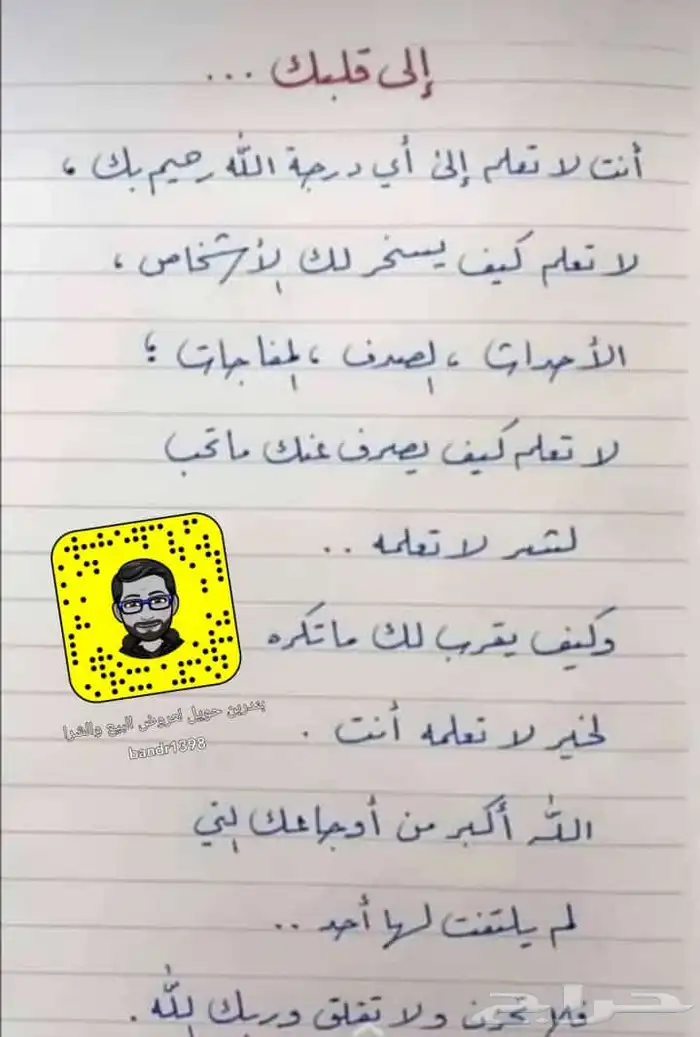 إلى قلبك ...
أنت لا تعلم إلى أي درجة الله رحيم بك ،
لا تعلم كيف يسخر لك الأشخاص ،
الأحداث ، الصدف ، المفاجات ؛
لا تعلم كيف يصرف عنك ما تحب
لشر لا تعلمه ..
وكيف يقرب لك ما تكره
لخير لا تعلمه أنت .
الله أكبر من أوجاعك التي
لم يلتفت لها أحد ..
فلا تحزن ولا تقلق وربك الله .
بندرين حويل لعروض البيع والشرا
bandr1398
حراج